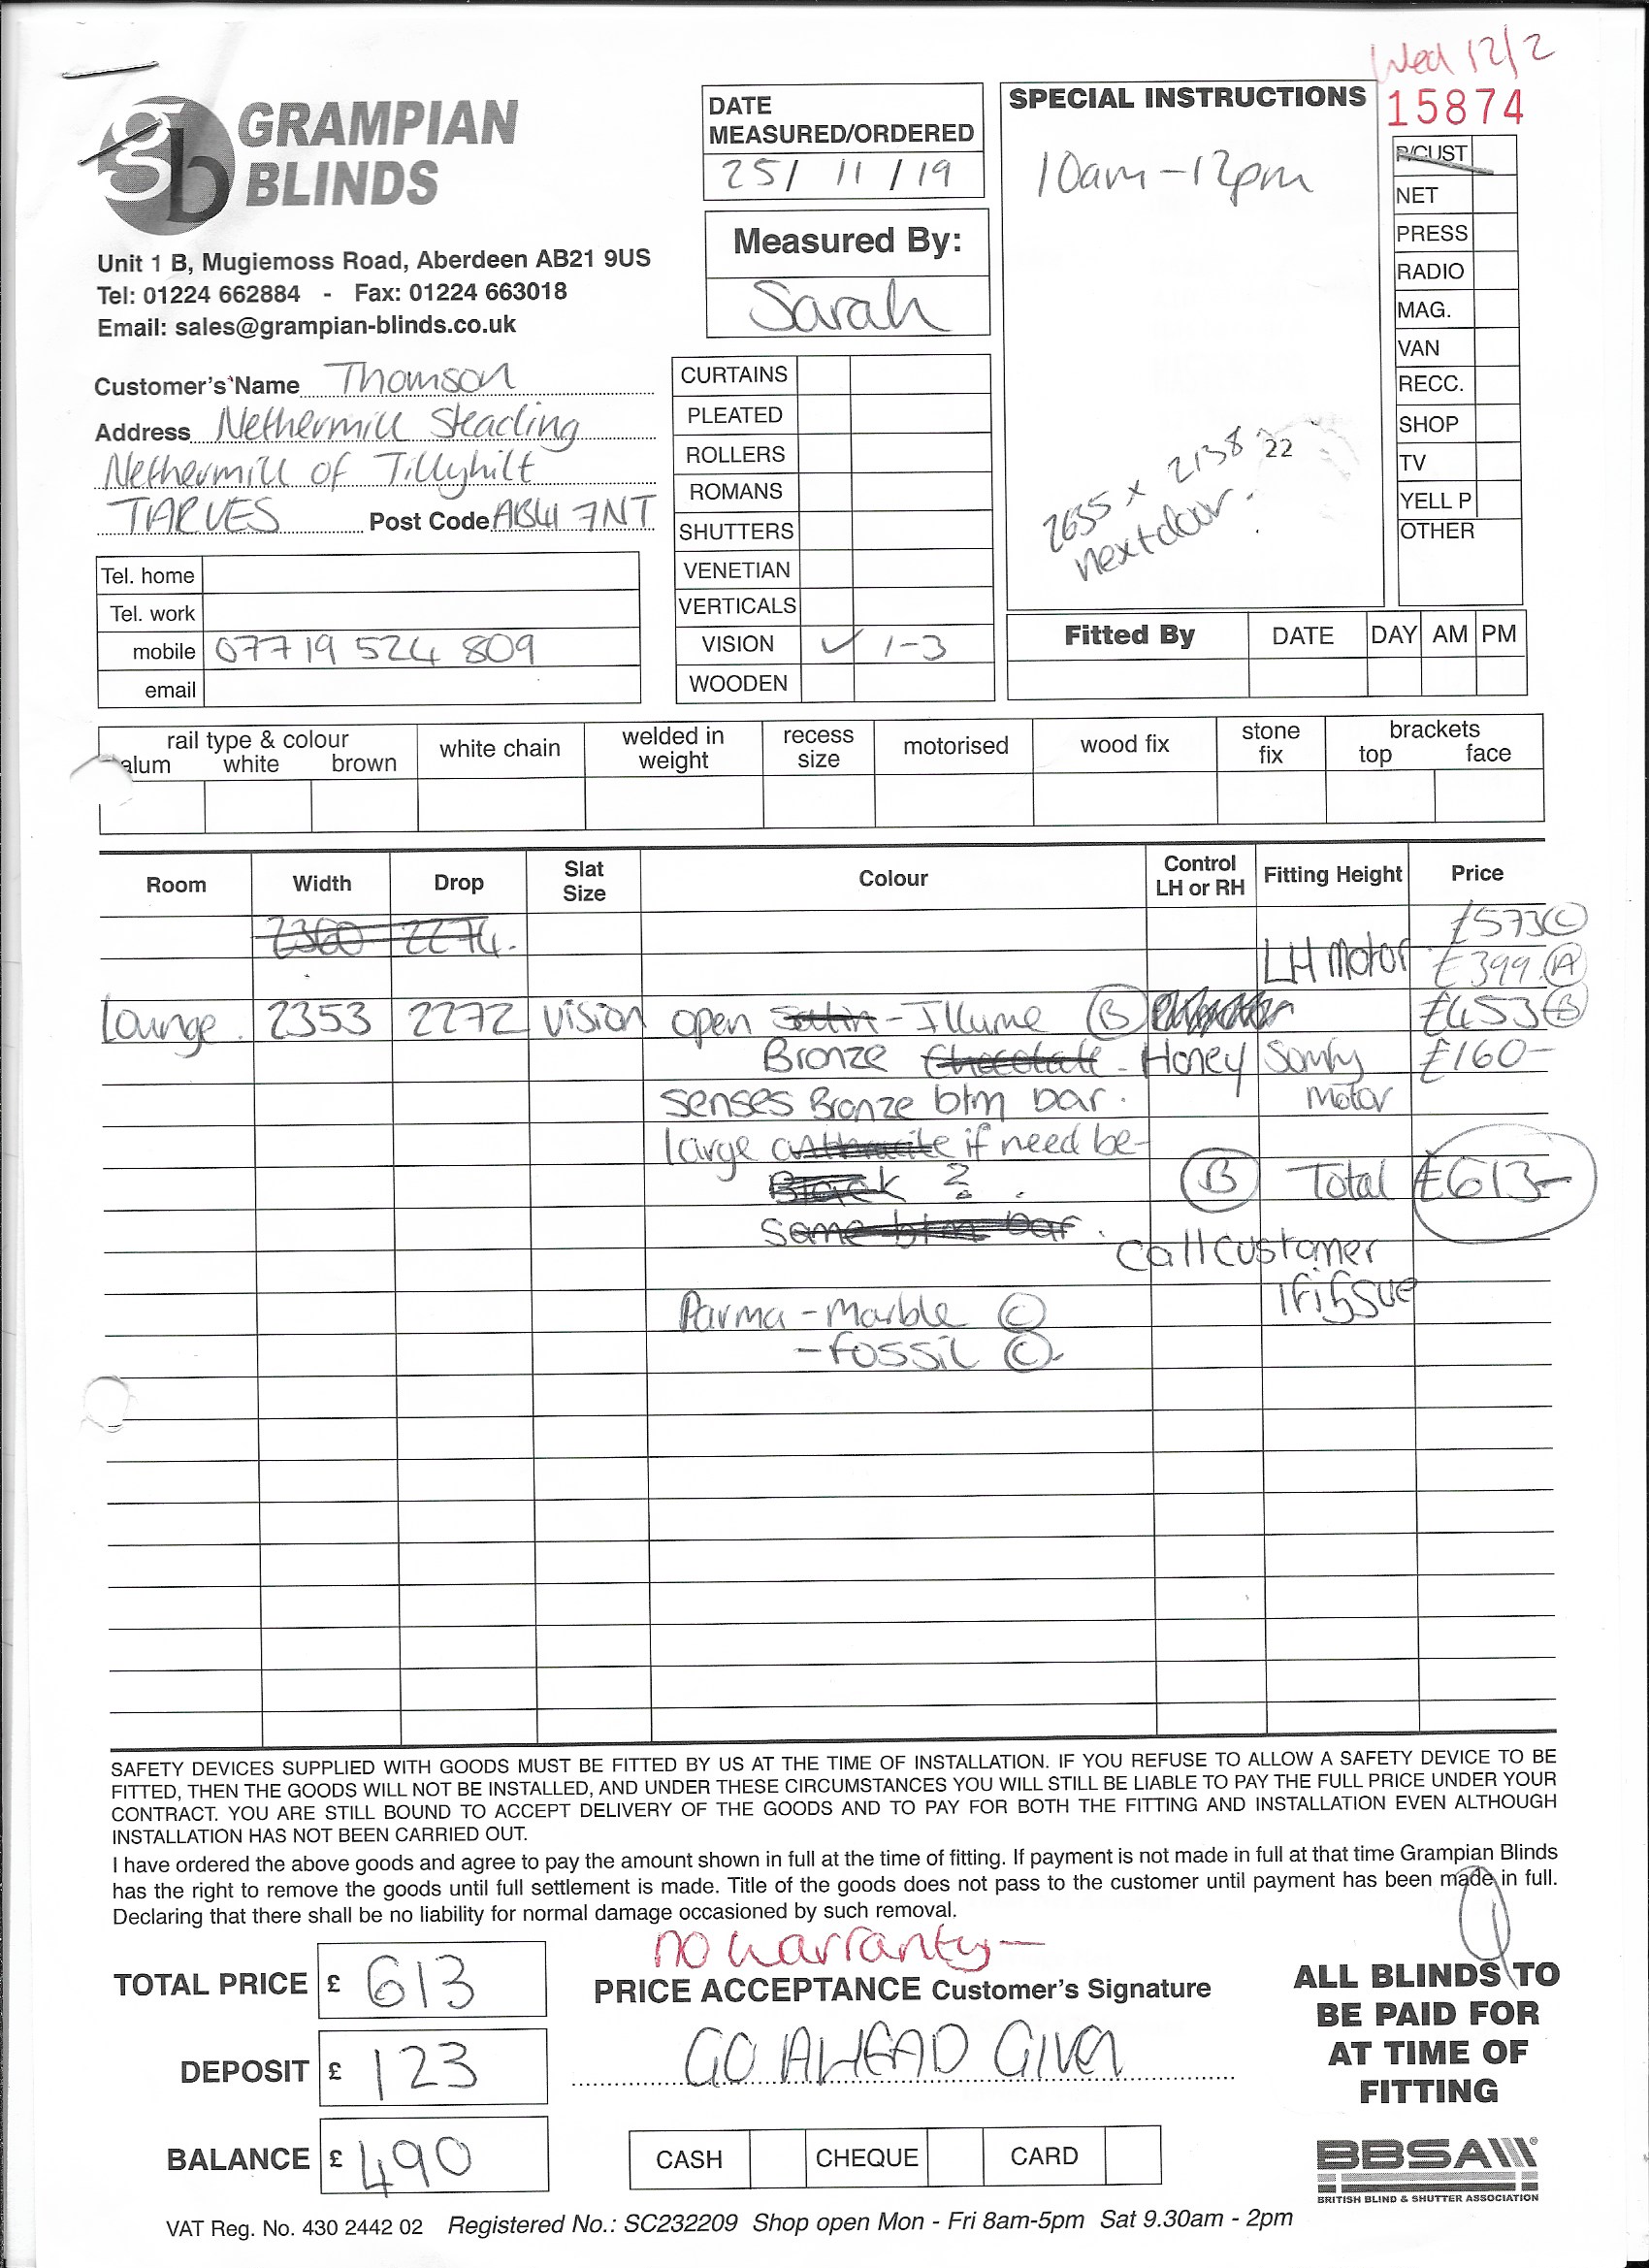 Wed 12/2
15874
GRAMPIAN
BLINDS
Unit 1 B, Mugiemoss Road, Aberdeen AB21 9US
Tel: 01224 662884 - Fax: 01224 663018
Email: sales@grampian-blinds.co.uk
DATE
MEASURED/ORDERED
25/ 11 / 19
Measured By:
Sarah
SPECIAL INSTRUCTIONS
10am-12pm
2655 x 2138 22
nextdoor.
P/CUST
NET
PRESS
RADIO
MAG.
VAN
RECC.
SHOP
TV
YELL P
OTHER
Customer's Name Thomson
Address Nethermill Steading
Nethermill of Tillyhilt
TARVES Post Code AB41 7NT
Tel. home
Tel. work
mobile 07719 524 809
email
CURTAINS
PLEATED
ROLLERS
ROMANS
SHUTTERS
VENETIAN
VERTICALS
VISION ✓ 1-3
WOODEN
Fitted By DATE DAY AM PM
rail type & colour
alum white brown
white chain
welded in
weight
recess
size
motorised
wood fix
stone
fix
brackets
top face
Room Width Drop Slat Size Colour Control LH or RH Fitting Height Price
2360 2274. £573 C
LH Motor £399 A
Lounge. 2353 2272 Vision open Satin - Illume B £453 B
Bronze Chocolate - Honey Somfy £160-
senses Bronze btm bar. Motor
large anthracite if need be-
Black ? B Total £613-
Same btm bar.
Call Customer
if issue
Parma - Marble C
- Fossil C.
SAFETY DEVICES SUPPLIED WITH GOODS MUST BE FITTED BY US AT THE TIME OF INSTALLATION. IF YOU REFUSE TO ALLOW A SAFETY DEVICE TO BE
FITTED, THEN THE GOODS WILL NOT BE INSTALLED, AND UNDER THESE CIRCUMSTANCES YOU WILL STILL BE LIABLE TO PAY THE FULL PRICE UNDER YOUR
CONTRACT. YOU ARE STILL BOUND TO ACCEPT DELIVERY OF THE GOODS AND TO PAY FOR BOTH THE FITTING AND INSTALLATION EVEN ALTHOUGH
INSTALLATION HAS NOT BEEN CARRIED OUT.
I have ordered the above goods and agree to pay the amount shown in full at the time of fitting. If payment is not made in full at that time Grampian Blinds
has the right to remove the goods until full settlement is made. Title of the goods does not pass to the customer until payment has been made in full.
Declaring that there shall be no liability for normal damage occasioned by such removal.
no warranty-
TOTAL PRICE £ 613
PRICE ACCEPTANCE Customer's Signature
GO AHEAD GIVEN
DEPOSIT £ 123
BALANCE £ 490
CASH CHEQUE CARD
ALL BLINDS TO
BE PAID FOR
AT TIME OF
FITTING
BBSA
BRITISH BLIND & SHUTTER ASSOCIATION
VAT Reg. No. 430 2442 02 Registered No.: SC232209 Shop open Mon - Fri 8am-5pm Sat 9.30am - 2pm